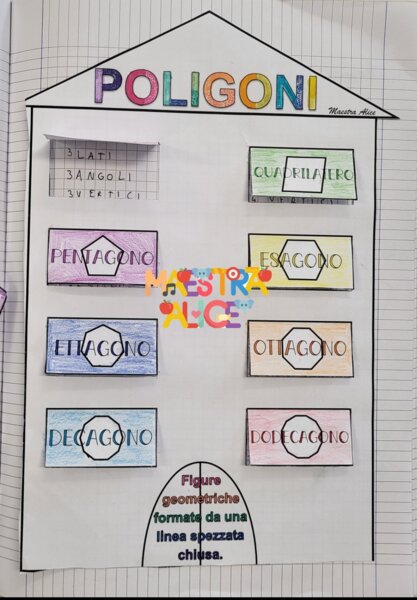 POLIGONI
Maestra Alice
3 LATI
3 ANGOLI
3 VERTICI
QUADRILATERO
4 VERTICI
PENTAGONO
ESAGONO
MAESTRA
ALICE
ETTAGONO
OTTAGONO
DECAGONO
DODECAGONO
Figure
geometriche
formate da una
linea spezzata
chiusa.